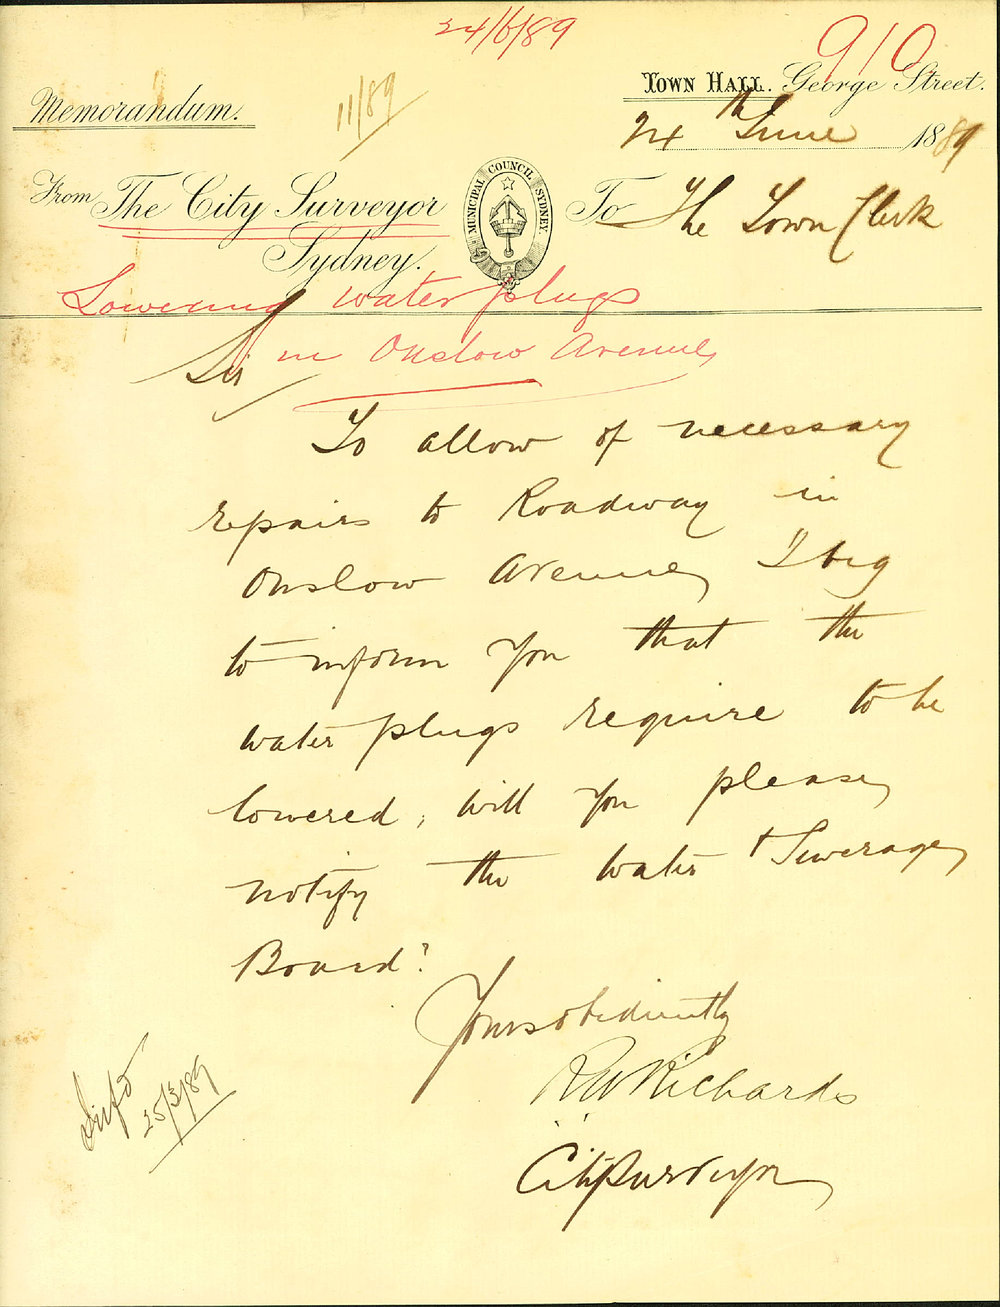 24/6/89
910
Memorandum.
11/89
Town Hall. George Street.
24th June 1889
From The City Surveyor
Sydney.
MUNICIPAL COUNCIL SYDNEY.
To The Town Clerk
Lowering water plugs
in Onslow Avenue
Sir
To allow of necessary
repairs to Roadway in
Onslow Avenue, I beg
to inform you that the
water plugs require to be
lowered, will you please
notify the Water & Sewerage
Board?
Yours obediently
RW Richards
City Surveyor